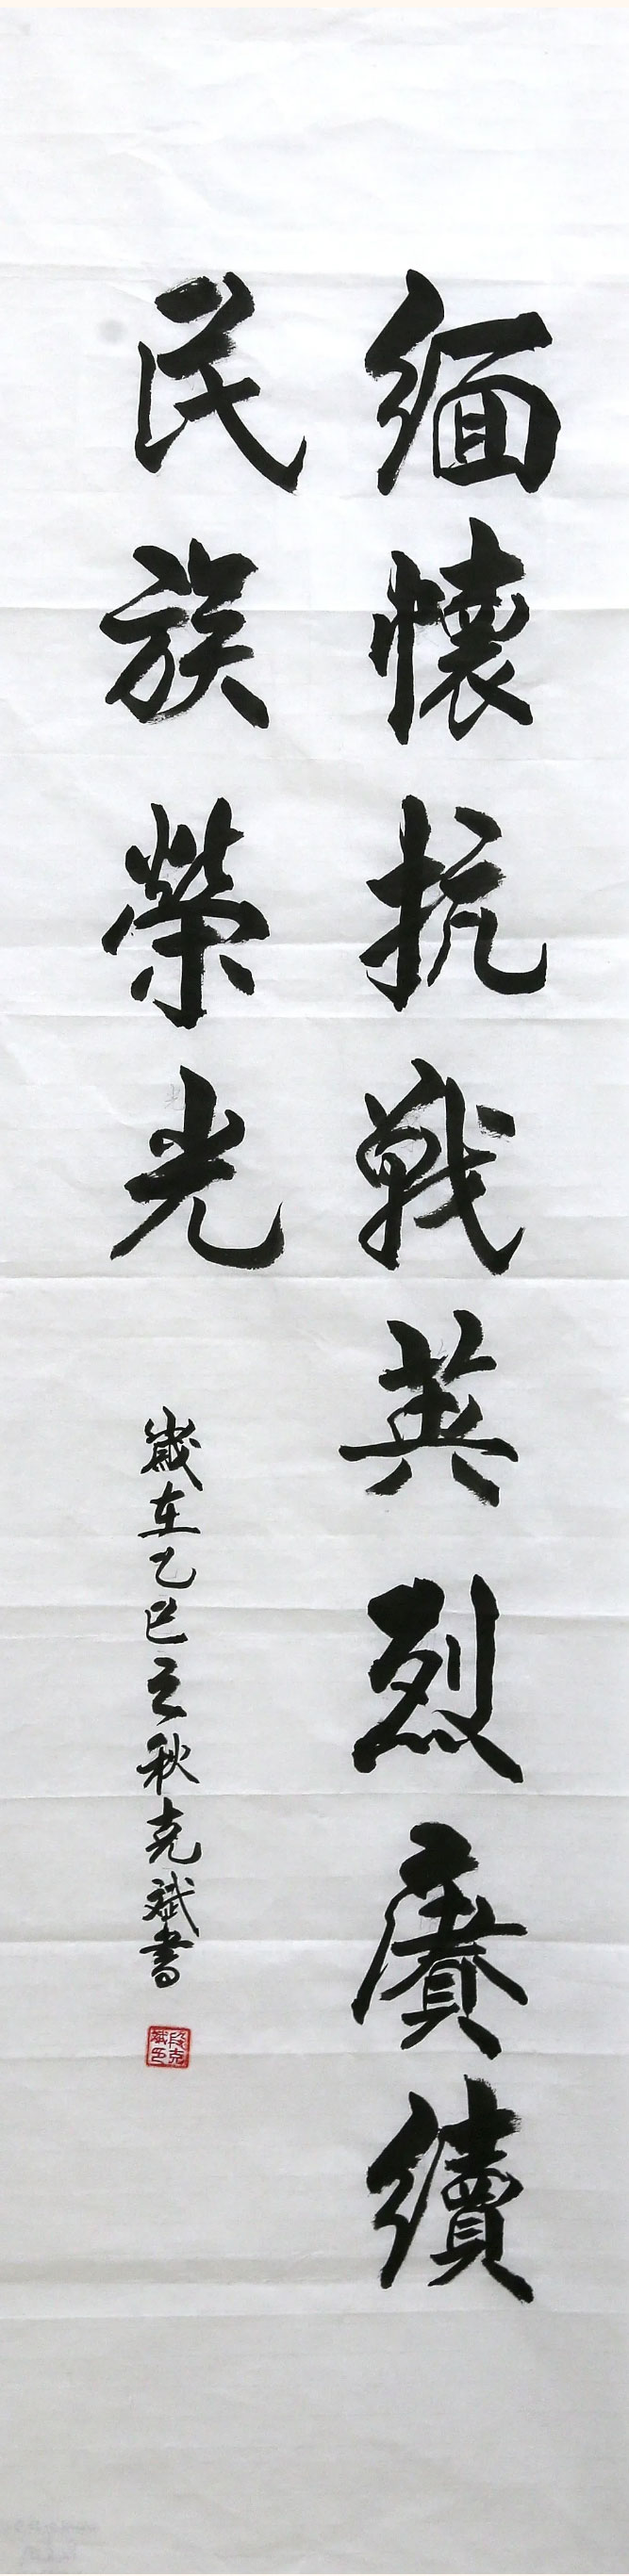 緬懷抗戰英烈賡續
民族榮光
歲在乙巳之秋克斌書
段克斌印